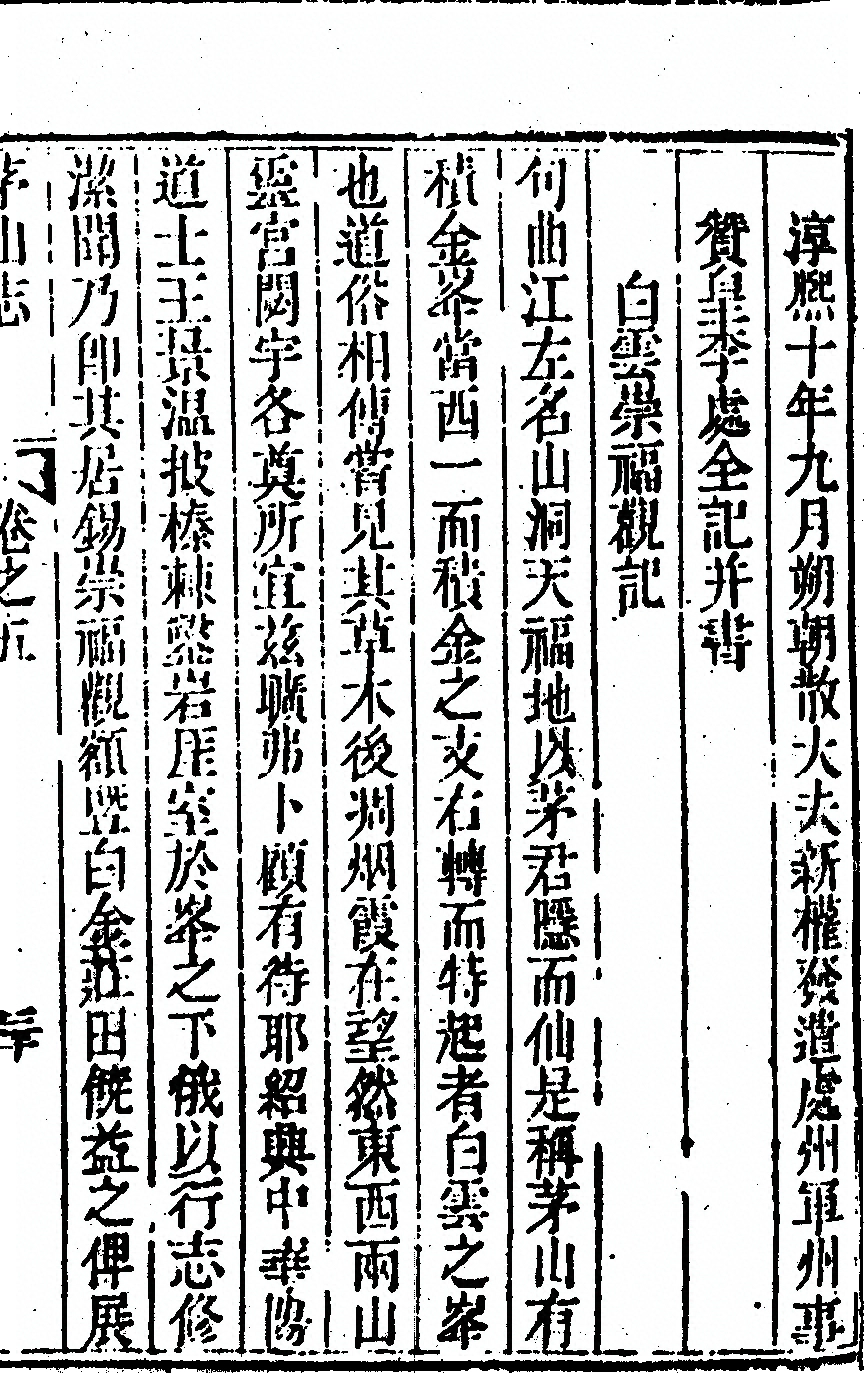 淳熈十年九月朔朝散大夫新權發遣處州軍州事
贊皇李處全記并書
白雲崇福觀記
句曲江左名山洞天福地以茅君隱而仙是稱茅山有
積金峯當西一而積金之支右轉而特起者白雲之峯
也道俗相傳嘗見其草木後凋烟霞在望然東西兩山
靈宮闕宇各奠所宜兹曠弗卜顧有待耶紹興中華陽
道士王景温披榛棘鑿岩厓室於峯之下俄以行志修
潔聞乃即其居錫崇福觀額暨白金莊田饒益之俾展
茅山志 卷之五